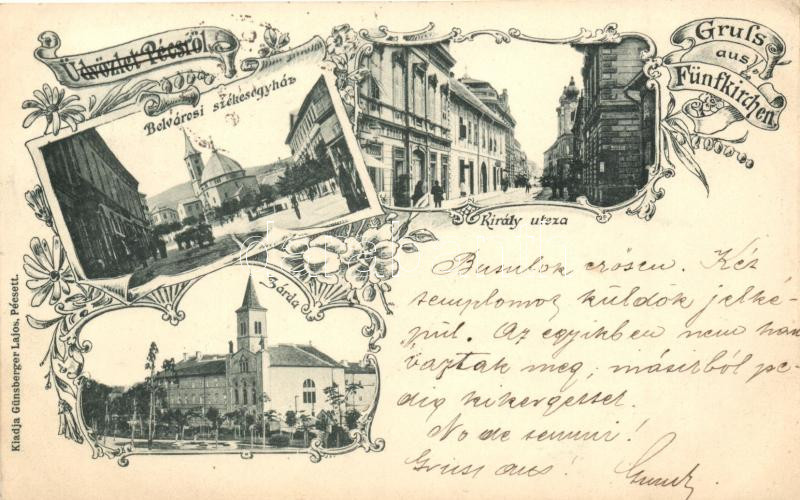 Üdvözlet Pécsről.
Gruſs
aus
Fünfkirchen.
Belvárosi székesegyház
Király utsza
Zárda
Kiadja Günsberger Lajos, Pécsett.
Busulok erősen. Két
templomot küldök jelké-
pül. Az egyikben nem
vaztak meg, másikból pe-
dig kikergettek.
No de semmi!
Gruss aus!